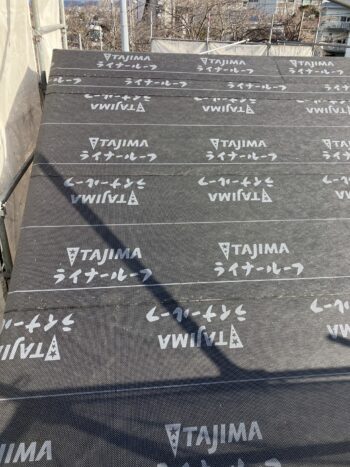 TAJIMA TAJIMA TAJIMA
ライナールーフ ライナールーフ ライナールーフ
ライナールーフ ライナールーフ ライナールーフ
TAJIMA TAJIMA TAJIMA
TAJIMA TAJIMA
ライナールーフ ライナールーフ
ライナールーフ ライナールーフ ライナールーフ
TAJIMA TAJIMA TAJIMA
TAJIMA TAJIMA
ライナールーフ ライナールーフ
ライナールーフ ライナールーフ
TAJIMA TAJIMA TAJIMA
TAJIMA TAJIMA